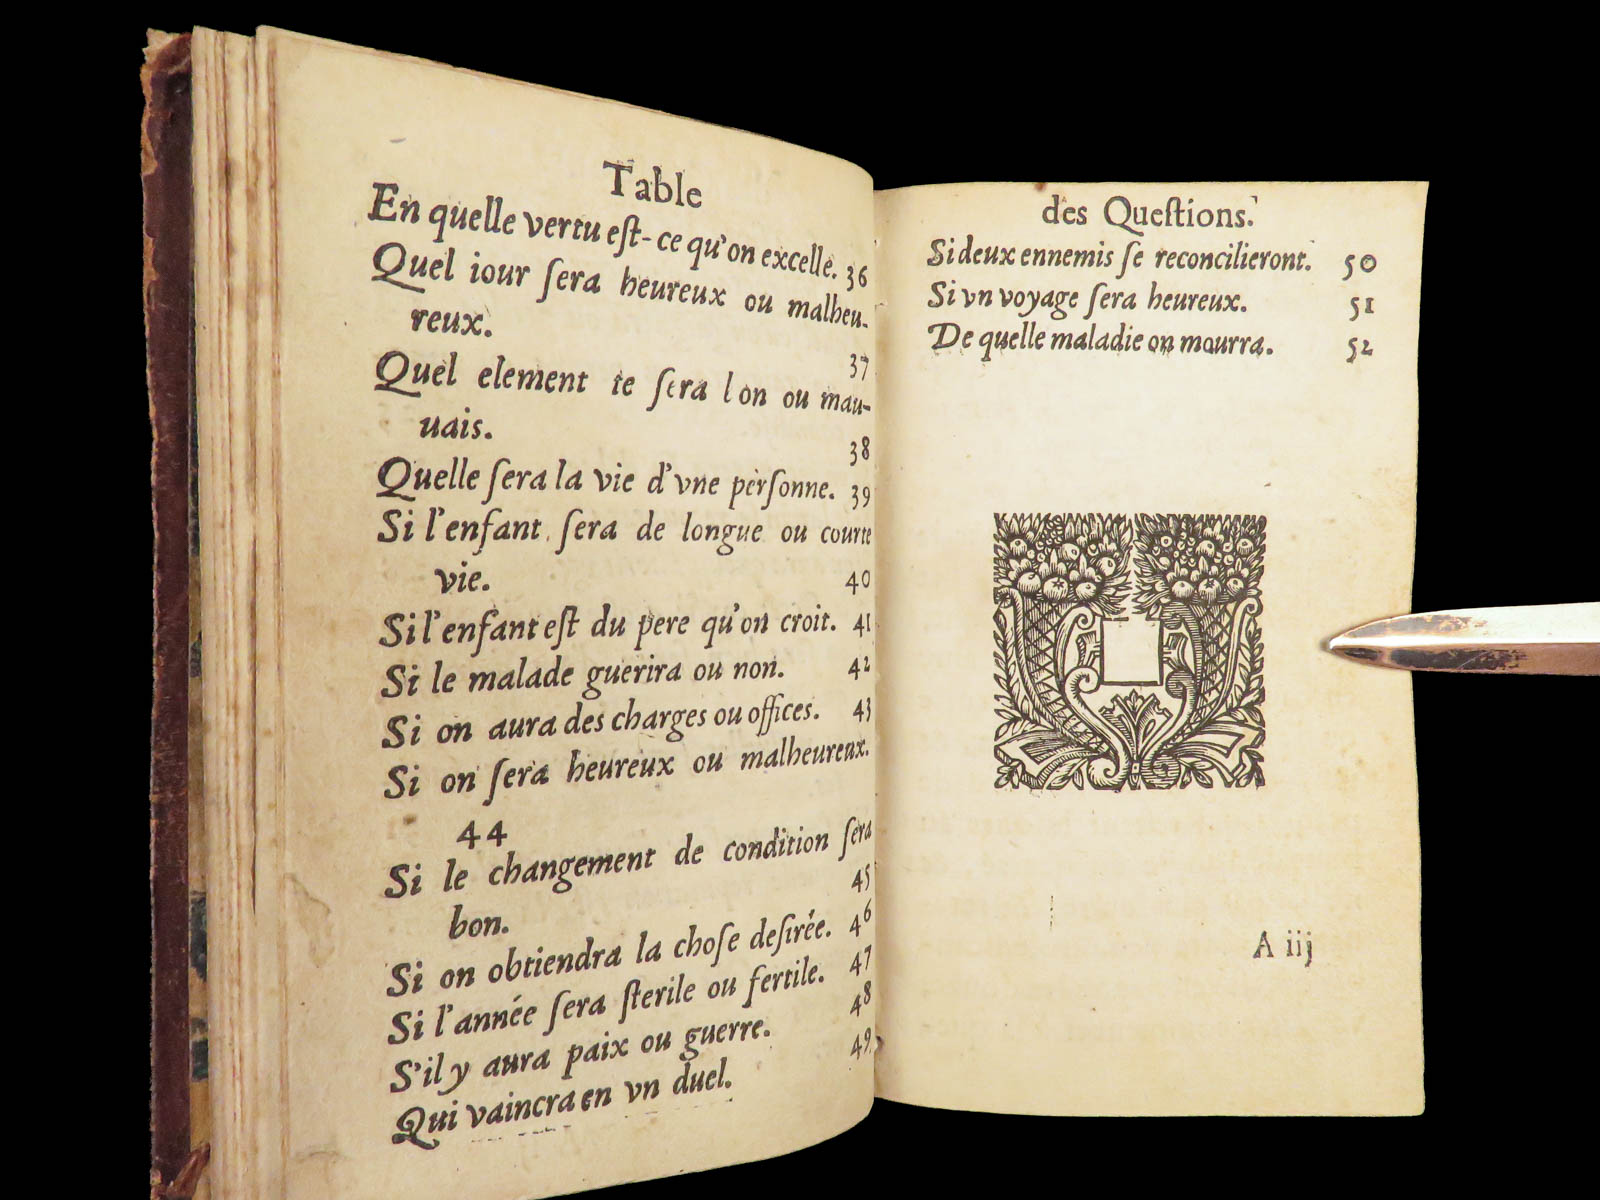 Table
En quelle vertu eſt-ce qu'on excelle. 36
Quel iour ſera heureux ou malheu-
reux. 37
Quel element te ſera bon ou mau-
uais. 38
Quelle ſera la vie d'vne perſonne. 39
Si l'enfant ſera de longue ou courte
vie. 40
Si l'enfant eſt du pere qu'on croit. 41
Si le malade guerira ou non. 42
Si on aura des charges ou offices. 43
Si on ſera heureux ou malheureux.
44
Si le changement de condition ſera
bon. 45
Si on obtiendra la choſe deſirée. 46
Si l'année ſera ſterile ou fertile. 47
S'il y aura paix ou guerre. 48
Qui vaincra en vn duel. 49
des Queſtions.
Si deux ennemis ſe reconcilieront. 50
Si vn voyage ſera heureux. 51
De quelle maladie on mourra. 52
A iij